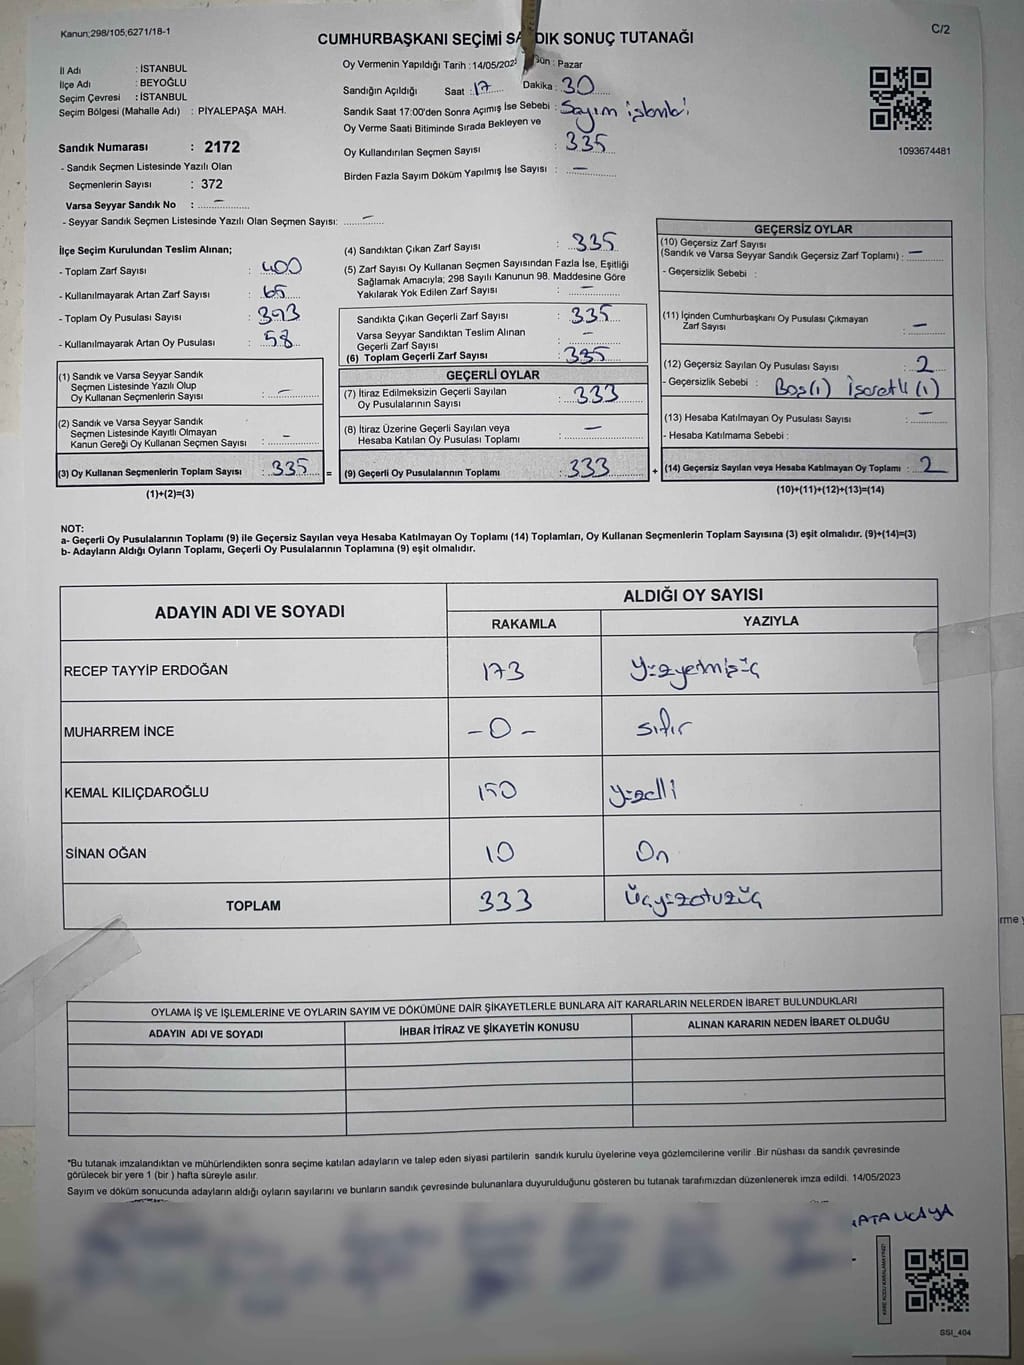 Kanun;298/105,6271/18-1
C/2
CUMHURBAŞKANI SEÇİMİ SANDIK SONUÇ TUTANAĞI
İl Adı : İSTANBUL
İlçe Adı : BEYOĞLU
Seçim Çevresi : İSTANBUL
Seçim Bölgesi (Mahalle Adı) : PİYALEPAŞA MAH.
Sandık Numarası : 2172
- Sandık Seçmen Listesinde Yazılı Olan
Seçmenlerin Sayısı : 372
Varsa Seyyar Sandık No : –
- Seyyar Sandık Seçmen Listesinde Yazılı Olan Seçmen Sayısı: –
Oy Vermenin Yapıldığı Tarih : 14/05/202 Gün : Pazar
Sandığın Açıldığı Saat : 17 Dakika : 30
Sandık Saat 17:00'den Sonra Açımış İse Sebebi : Sayım işlemleri
Oy Verme Saati Bitiminde Sırada Bekleyen ve
Oy Kullandırılan Seçmen Sayısı : 335
Birden Fazla Sayım Döküm Yapılmış İse Sayısı : –
1093674481
İlçe Seçim Kurulundan Teslim Alınan;
- Toplam Zarf Sayısı : 400
- Kullanılmayarak Artan Zarf Sayısı : 65
- Toplam Oy Pusulası Sayısı : 393
- Kullanılmayarak Artan Oy Pusulası : 58
(1) Sandık ve Varsa Seyyar Sandık
Seçmen Listesinde Yazılı Olup
Oy Kullanan Seçmenlerin Sayısı : –
(2) Sandık ve Varsa Seyyar Sandık
Seçmen Listesinde Kayıtlı Olmayan
Kanun Gereği Oy Kullanan Seçmen Sayısı : –
(3) Oy Kullanan Seçmenlerin Toplam Sayısı : 335 =
(1)+(2)=(3)
(4) Sandıktan Çıkan Zarf Sayısı : 335
(5) Zarf Sayısı Oy Kullanan Seçmen Sayısından Fazla İse, Eşitliği
Sağlamak Amacıyla; 298 Sayılı Kanunun 98. Maddesine Göre
Yakılarak Yok Edilen Zarf Sayısı : –
Sandıkta Çıkan Geçerli Zarf Sayısı : 335
Varsa Seyyar Sandıktan Teslim Alınan
Geçerli Zarf Sayısı : –
(6) Toplam Geçerli Zarf Sayısı : 335
GEÇERLİ OYLAR
(7) İtiraz Edilmeksizin Geçerli Sayılan
Oy Pusulalarının Sayısı : 333
(8) İtiraz Üzerine Geçerli Sayılan veya
Hesaba Katılan Oy Pusulası Toplamı : –
(9) Geçerli Oy Pusulalarının Toplamı : 333 +
GEÇERSİZ OYLAR
(10) Geçersiz Zarf Sayısı
(Sandık ve Varsa Seyyar Sandık Geçersiz Zarf Toplamı) : –
- Geçersizlik Sebebi :
(11) İçinden Cumhurbaşkanı Oy Pusulası Çıkmayan
Zarf Sayısı : –
(12) Geçersiz Sayılan Oy Pusulası Sayısı : 2
- Geçersizlik Sebebi : Boş(1) İşaretli (1)
(13) Hesaba Katılmayan Oy Pusulası Sayısı : –
- Hesaba Katılmama Sebebi :
(14) Geçersiz Sayılan veya Hesaba Katılmayan Oy Toplamı : 2
(10)+(11)+(12)+(13)=(14)
NOT:
a- Geçerli Oy Pusulalarının Toplamı (9) ile Geçersiz Sayılan veya Hesaba Katılmayan Oy Toplamı (14) Toplamları, Oy Kullanan Seçmenlerin Toplam Sayısına (3) eşit olmalıdır. (9)+(14)=(3)
b- Adayların Aldığı Oyların Toplamı, Geçerli Oy Pusulalarının Toplamına (9) eşit olmalıdır.
ADAYIN ADI VE SOYADI
ALDIĞI OY SAYISI
RAKAMLA YAZIYLA
RECEP TAYYİP ERDOĞAN 173 Yüzyetmişüç
MUHARREM İNCE -0- sıfır
KEMAL KILIÇDAROĞLU 150 Yüzelli
SİNAN OĞAN 10 On
TOPLAM 333 Üçyüzotuzüç
rme
OYLAMA İŞ VE İŞLEMLERİNE VE OYLARIN SAYIM VE DÖKÜMÜNE DAİR ŞİKAYETLERLE BUNLARA AİT KARARLARIN NELERDEN İBARET BULUNDUKLARI
ADAYIN ADI VE SOYADI İHBAR İTİRAZ VE ŞİKAYETİN KONUSU ALINAN KARARIN NEDEN İBARET OLDUĞU
*Bu tutanak imzalandıktan ve mühürlendikten sonra seçime katılan adayların ve talep eden siyasi partilerin sandık kurulu üyelerine veya gözlemcilerine verilir .Bir nüshası da sandık çevresinde
görülecek bir yere 1 (bir ) hafta süreyle asılır.
Sayım ve döküm sonucunda adayların aldığı oyların sayılarını ve bunların sandık çevresinde bulunanlara duyurulduğunu gösteren bu tutanak tarafımızdan düzenlenerek imza edildi. 14/05/2023
KARE KODU KARALAMAYINIZ!
SSI_404